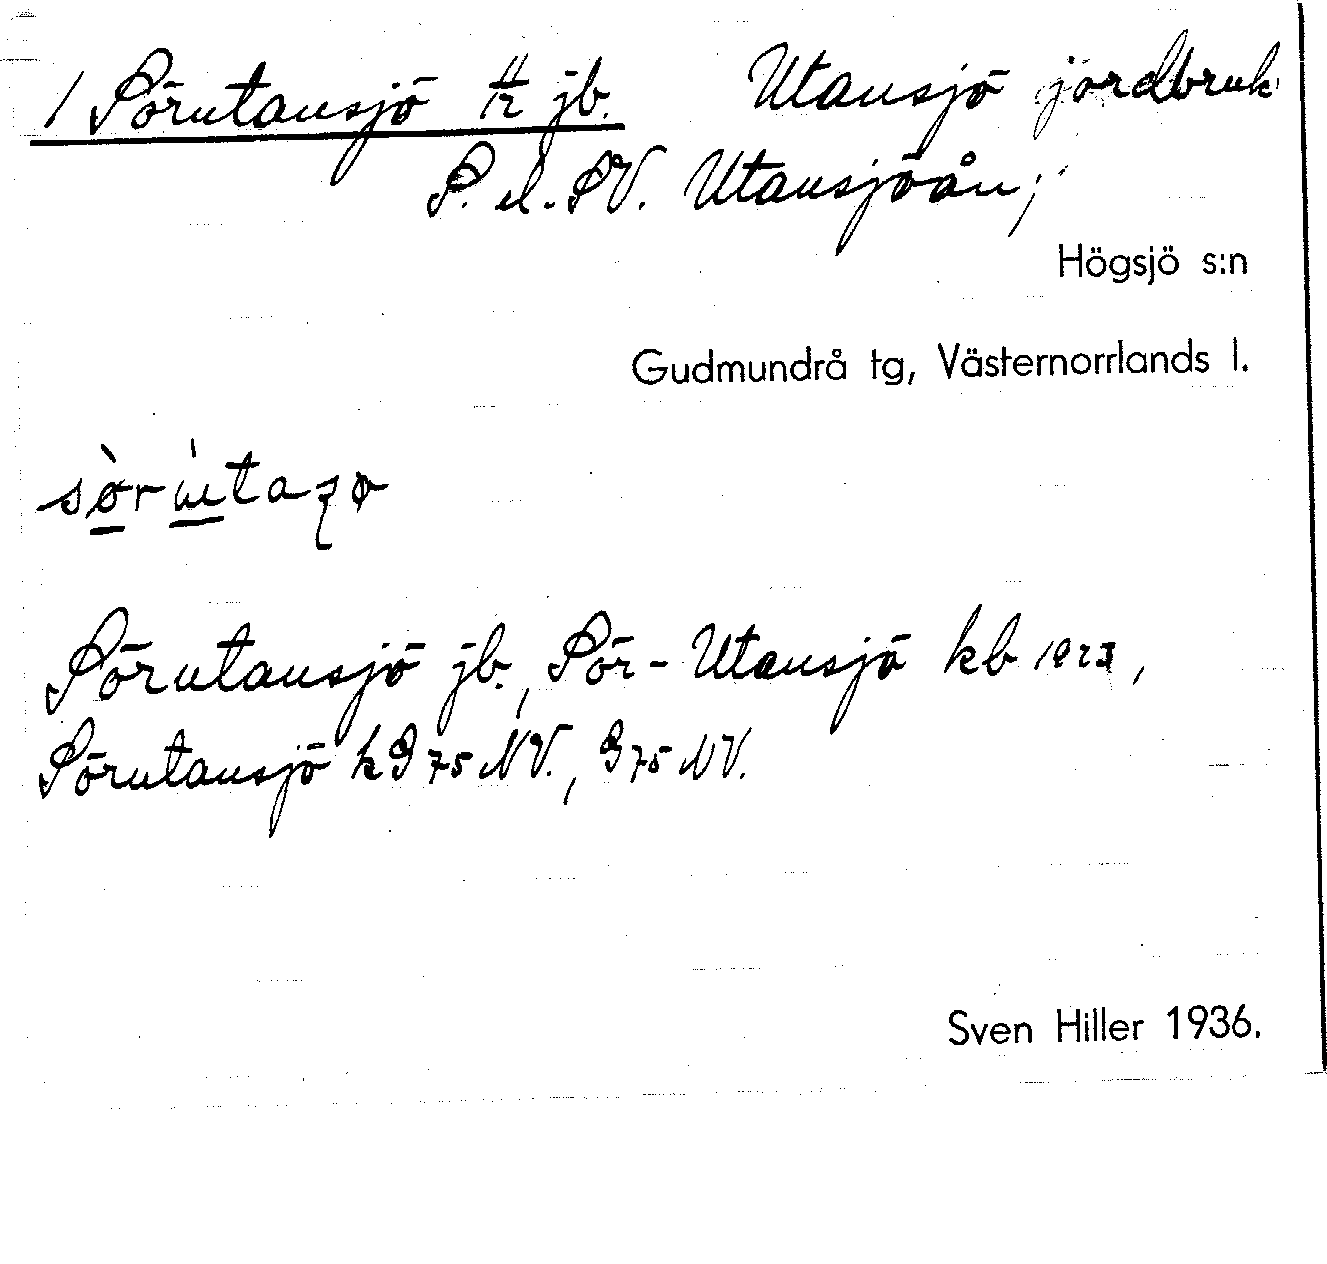 / Sörutansjö tr jb. Utansjö jordbruk
S. el. SV. Utansjöån;
Högsjö s:n
Gudmundrå tg, Västernorrlands l.
Sörutansjö jb., Sör-Utansjö kb 1927,
Sörutansjö k 975 NV., 975 NV.
Sven Hiller 1936.